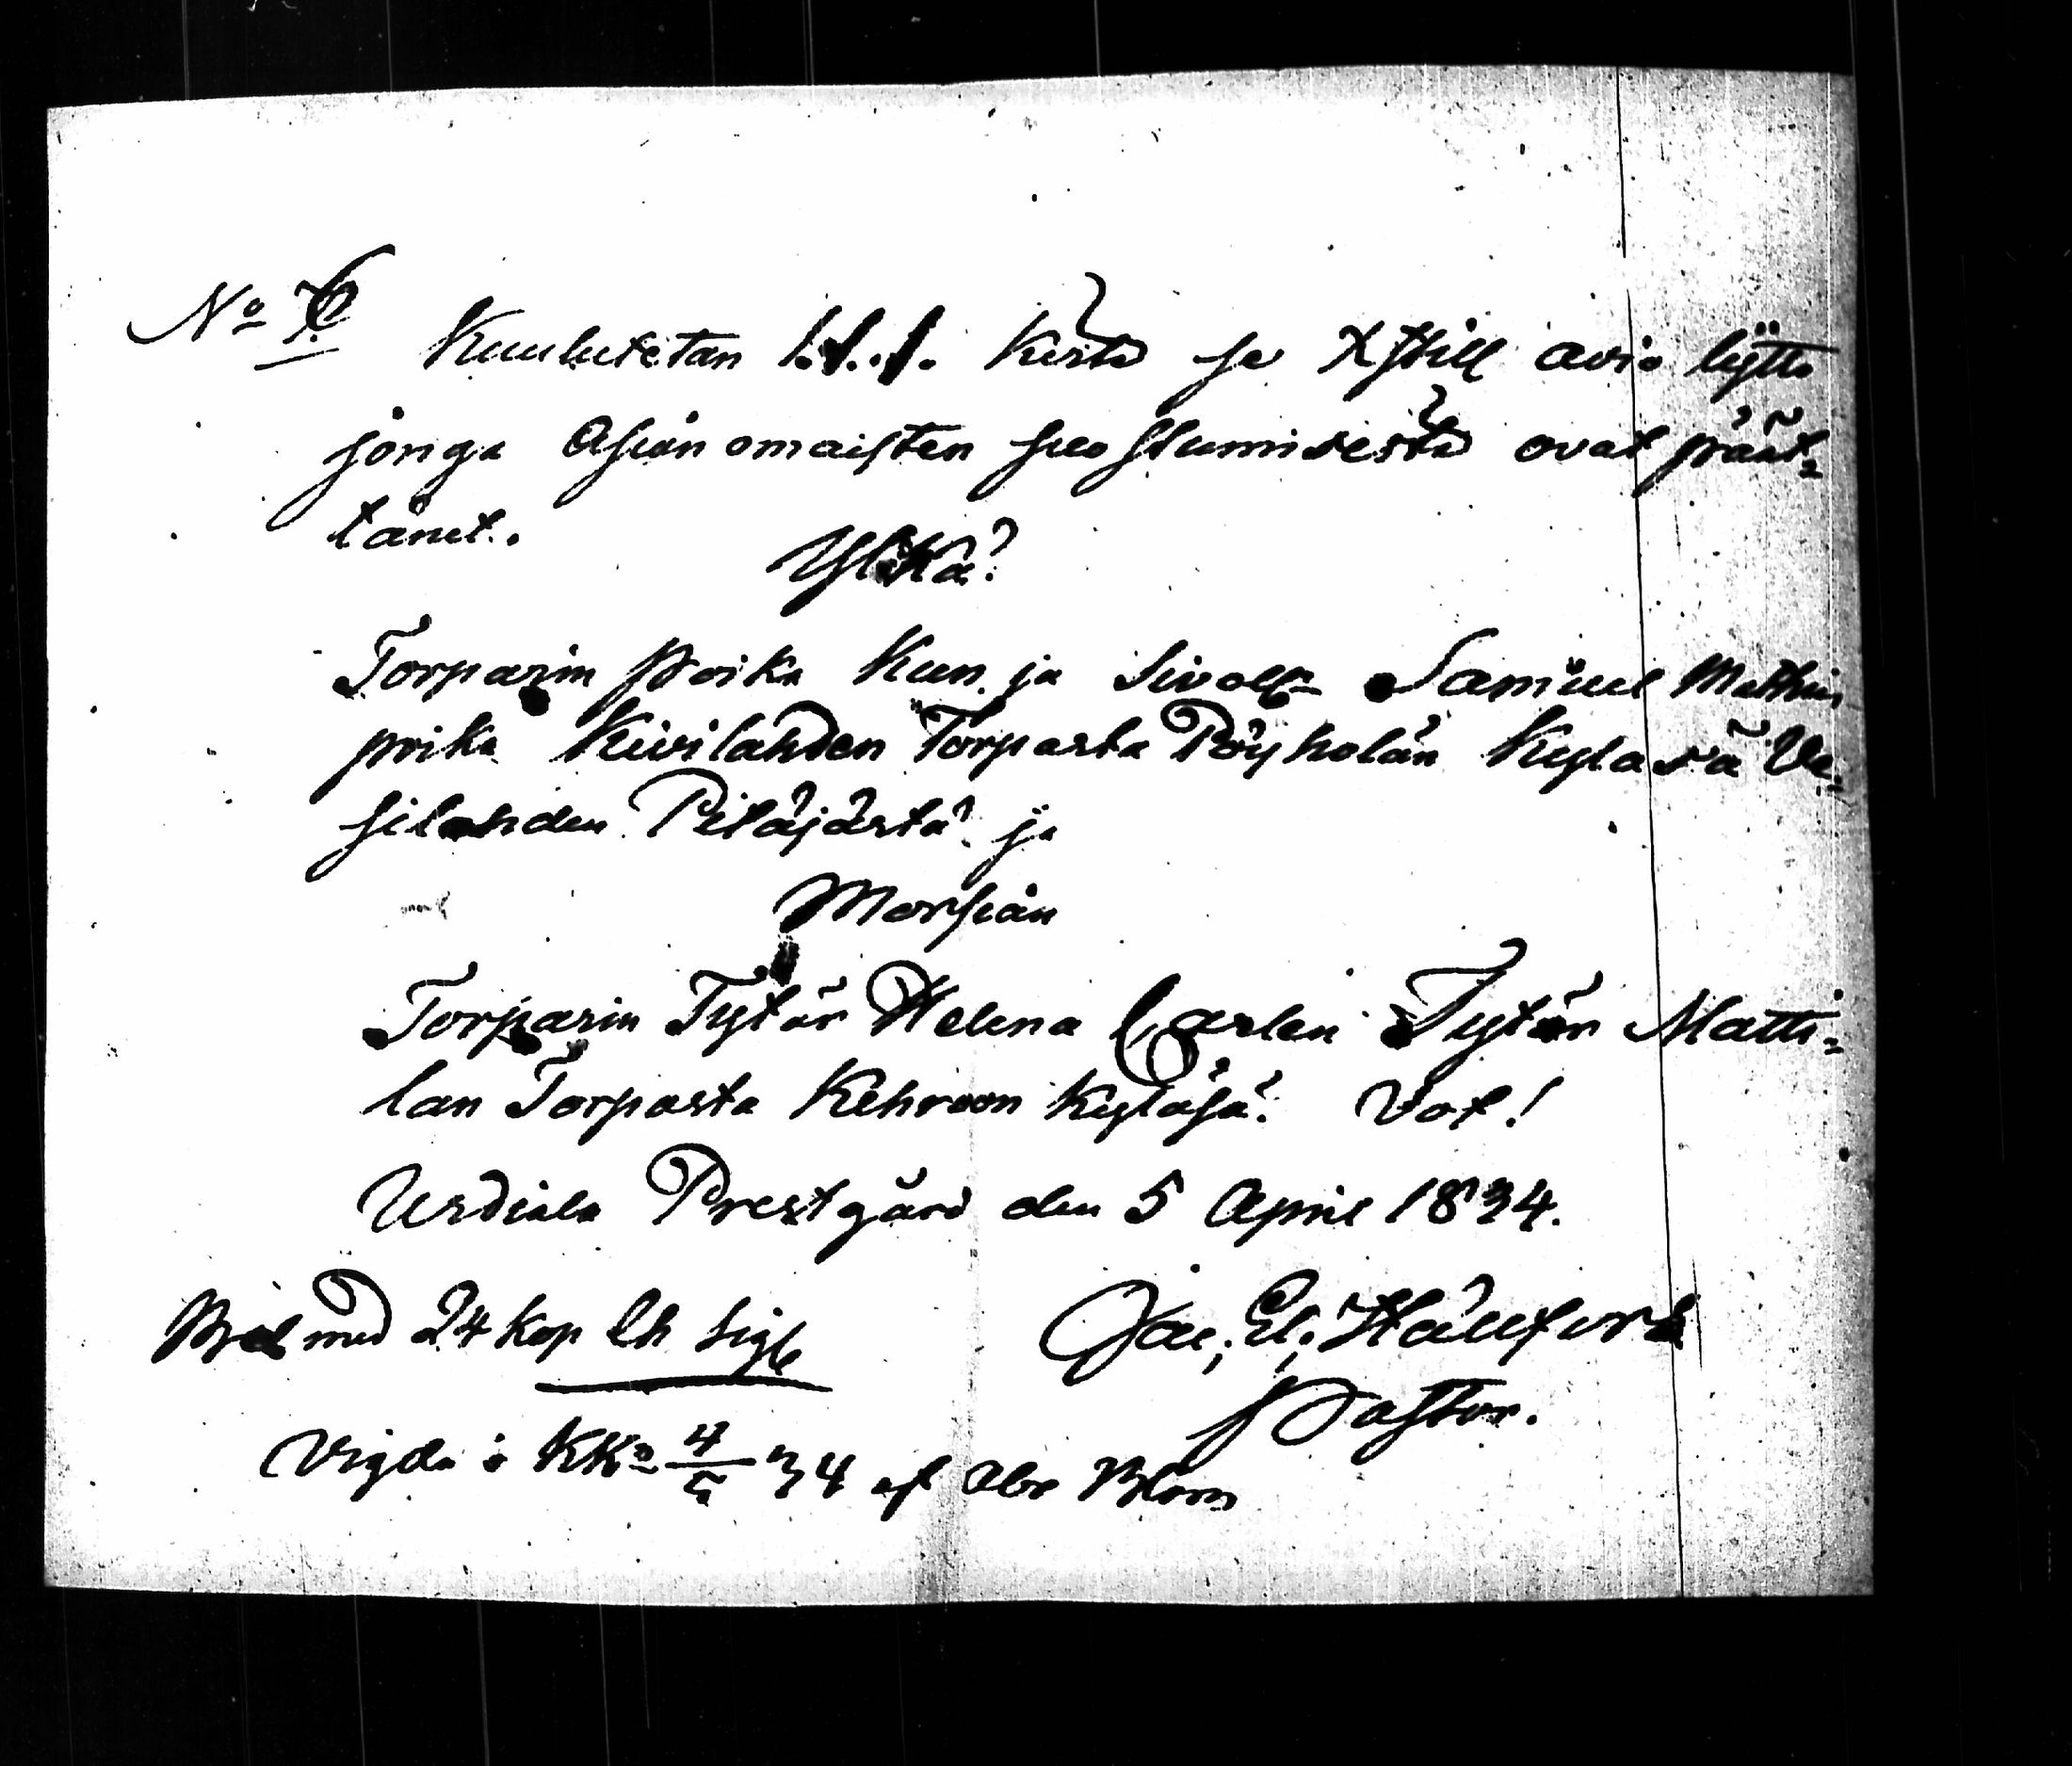 No
Kuulutetan 1.1.1. Kerta se Xstill avio lytto
jonga Asian omaisten suostumisesta ovat päät=
tänet.
Ylkä?
Torparin Poika Kun. ja Sivolle Samuel Mathin
poika Kivilahden Torpasta Pöyholän Kylasä Ve=
silahden Pitäjästä ja
Morsian
Torparin Tytär Helena Carlen Tytär Matti=
lan Torpasta Kehroon Kyläsä. Vot!
Urdiala Prestgård den 5 April 1834.
med 24 kop
Jac; El;
Pastor.
Vigda i KKn 4/5 34 af Abr Blom